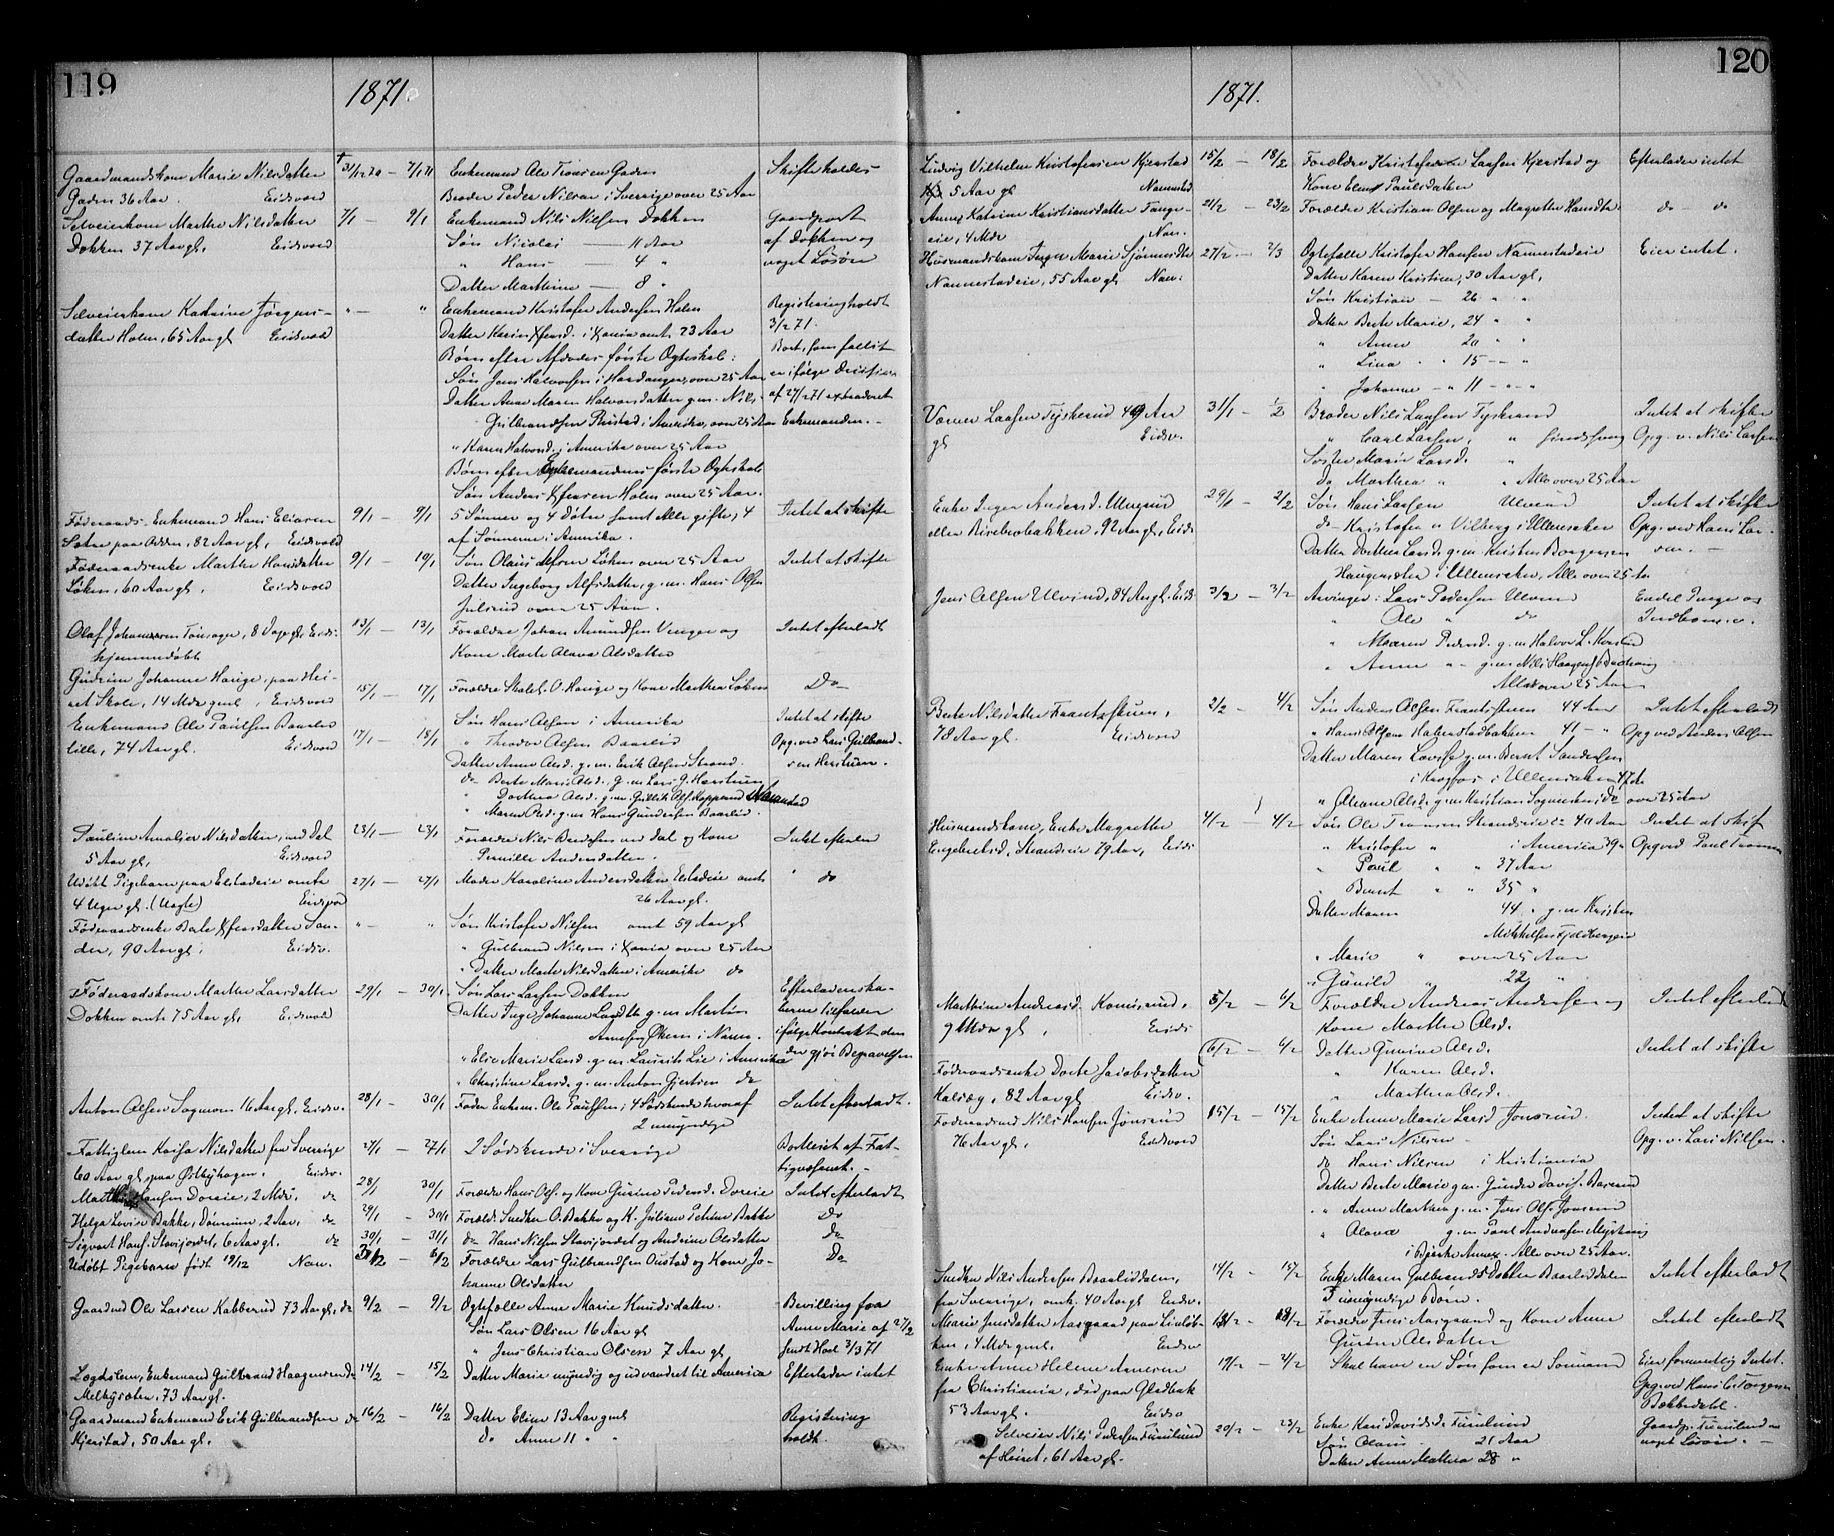 119
1871
Gaardmandskone Marie Nilsdatter
Gaden 36 Aar. Eidsvold
31/12 70 — 7/1 71
Enkemand Ole Tronsen Gaden
Broder Peder Nilsen i Sverrige over 25 Aar
Skifte holdes
Selveierkone Marthe Nilsdatter
Dokken 37 Aar gl. Eidsvold
7/1 — 9/1
Enkemand Nils Nilsen Dokken
Søn Nicolai — 11 Aar
" Hans — 4 "
Datter Marthine — 8 "
Gaardpart
af Dokken og
noget Løsøre
Selveierkone Katrine Jørgens-
datter Holm, 65 Aar gl Eidsvold
" — "
Enkemand Kristofer Andersen Holm
Datter Karine Xfersd. i Xania omt. 23 Aar
Børn efter Afdødes første Egteskab:
Søn Jens Halvorsen i Hardanger, over 25 Aar
Datter Anne Maren Halvorsdatter g.m. Nils
Gulbrandsen Rustad i Amerika, over 25 Aar
" Karen Halvorsd. i Amerika over 25 Aar
Børn efter Enkemandens første Egteskab
Søn Anders Xfersen Holm over 25 Aar.
Registrering holdt
3/2 71.
Boet, som fallit
er ifølge Decision
af 27/2 71 extraderet
Enkemanden. -
Føderaads Enkemand Hans Eliasen
Sætre paa Odden, 82 Aar gl, Eidsvold
9/1 — 9/1
5 Sønner og 4 Døtre samt alle gifte, 4
af Sønnerne i Amerika.
Intet at skifte
Føderaadsenke Marthe Hansdatter
Løken, 60 Aar gl. Eidsvold
9/1 — 10/1
Søn Olaus Alfsen Løken over 25 Aar
Datter Ingeborg Alfsdatter, g.m. Hans Olsen
Julsrud over 25 Aar.
Intet at skifte
Olaf Johannesen Tønsager, 8 Dage gl, Eids.
hjemmedøbt
13/1 — 13/1
Forældre Johan Amundsen Venger og
Kone Marte Olava Olsdatter
Intet efterladt
Gudrun Johanne Hauge, paa Hei-
set Skole, 14 Mdr gml, Eidsvold
15/1 — 17/1
Forældre O. Hauge og Kone Marthea Løken
Do
Enkemand Ole Paulsen Baarlid
lille, 74 Aar gl. Eidsvold
17/1 — 18/1
Søn Hans Olsen i Amerika
" Theodor Olsen Baarlid
Datter Anne Olsd. g.m. Erik Olsen Strand.
do Berte Marie Olsd. g.m. Lars G. Hærstuen
" Dorthea Olsd. g.m. Gullik Olsen Nannestad
" Maren Olsd. g.m. Hans Gundersen Baarlid.
Intet at skifte
Opg. ved Lars Gulbrand-
sen Hærstuen.
Pauline Amalie Nilsdatter, ned Dal
5 Aar gl, Eidsvold
23/1 — 23/1
Forældre Nils Berdsen ned Dal og Kone
Pernille Andersdatter.
Intet efterlad
Udøbt Pigebarn paa Elstadeie omtr
4 Uger gl. (Uægte) Eidsvold
27/1 — 27/1
Moder Karoline Andersdatter Elstadeie omt.
26 Aar gl.
" do
Føderaadsenke Berte Xfersdatter Søn-
der, 90 Aar gl, Eidsv.
" — "
Søn Kristofer Nilsen omt 59 Aar gl
" Gulbrand Nilsen i Xania over 25 Aar
" Datter Marte Nilsdatter i Amerika do
Føderaadskone Marthe Larsdatter
Dokken omtr 75 Aar gl, Eidsvold
29/1 — 30/1
Søn Lars Larsen Dokken
Datter Inge Johanne Larsdtr g.m. Martin
Arnesen Økern i Nann.
" Elie Marie Larsd. g.m. Laurits Lie i Amerika
" Christine Larsd. g.m. Anton Gjertsen do
Efterladenska-
berne tilfalder
ifølge Kontrakt den
der gjør Begravelsen
Anton Olsen Sogmoen 16 Aar gl, Eidsv.
28/1 — 30/1
Fader Enkem. Ole Paulsen, 4 Sødskende hvoraf
2 umyndige
Intet efterladt.
Fattiglem Kaisa Nilsdatter fra Sverrige
60 Aar gl paa Østbyhagen. Eidsv.
27/1 — 27/1
2 Sødskende i Sverrige
Bortleiet af Fat-
tigvæsenet. -
Hansen Doreie, 2 Mdr. do
28/1 — 30/1
Forældre Hans Ols. og Kone Gurine Pedersd. Doreie
Intet efterladt
Helga Lovise Bakke, Dønnum, 2 Aar, do
29/1 — 30/1
Foræld. Snedker O. Bakke og K. Juliane Petrine Bakke
Do
Sigvart Hans. Stavfjordet, 6 Aar gl. do
30/1 — 31/1
do Hans Nilsen Stavfjordet og Andrine Olsdatter
Do
Udøbt Pigebarn født 19/12 Nan.
31/12 — 6/2
Forældre Lars Gulbrandsen Oustad og Kone Jo-
hanne Olsdatter
Do
Gaardmd Ole Larsen Kabberud 73 Aar gl, do
9/2 — 9/2
Egtefælle Anne Marie Knudsdatter.
Søn Lars Olsen 16 Aar gl
" Jens Christian Olsen 7 Aar gl
Bevilling for
Anne Marie af 27/2
sendt Hosl 3/3 71
Lægdslem, Enkemand Gulbrand Haagensen do
Melbysæter, 73 Aar gl.
14/2 — 15/2
Datter Marie myndig og udvandret til America
Efterlader intet
Gaardmand Enkemand Erik Gulbrandsen do
Kjerstad, 50 Aar gl.
16/2 — 16/2
Datter Eline 13 Aar gml
Do Anne 11 " "
Registrering
holdt.
120
1871.
Ludvig Vilhelm Kristofersen Kjerstad
5 Aar gl Nannestad
15/2 — 18/2
Forældre Kristofer Larsen Kjerstad og
Kone Elene Paulsdatter
Efterlader intet
Anne Katrine Kristiansdatter Tange-
eie, 4 Mdr Nan.
21/2 — 23/2
Forældre Kristian Olsen og Magrethe Hansdtr
do — do
Husmandskone Inger Marie
Nannestadeie, 55 Aar gl Nan.
27/2 — 2/3
Egtefælle Kristofer Hansen Nannestadeie
Datter Karen Kristine, 30 Aar gl,
Søn Kristian — 26 " "
Datter Berte Marie, 24 " "
" Anne 20 " "
" Lina " 15 — "
" Johanne — " 11 — " "
Eier intet.
Verner Larsen Tyskerud 49 Aar
gl Eidsv.
31/1 — 1/2
Broder Nils Larsen Tyskerud
" Carl Larsen, "
Søster Marie Larsd. "
Do Marthea " " Alle over 25 Aar
Intet at skifte
Opg. v. Nils Larsen
Enke Inger Andersd. Ulverud
eller Risebrobakken, 92 Aar gl, Eids
29/1 — 2/2
Søn Hans Larsen Ulverud
do Kristofer " Vilberg i Ullensaker
Datter Dorthea Larsd. g.m. Kristen Borgersen
Haugensæter i Ullensaker, Alle over 25 Aar
Intet at skifte
Opg. ved Hans Lar-
sen. —
Jens Olsen Ulverud, 84 Aar gl, Eids
3/2 — 3/2
Arvinger: Lars Pedersen Ulverud
" Ole " do
" Maren Pedersd. g.m. Halvor L.
" Anne " g.m. Nils Haagens.
Alle over 25 Aar
Endel Penge og
Indbo m.v.
Berte Nilsdatter Frantsstuen,
78 Aar gl. Eidsvold
2/2 — 4/2
Søn Anders Olsen Frantsstuen 44 Aar
" Hans Olsen Halvorstadbakken 41 — "
Datter Maren Lovise g.m. Bernt Sandersen
i Krogfos i Ullensaker 47 Ar
" Oleane Olsd. g.m. Kristian Sogmoen do over 25 Aar
Intet efterladt
Opg ved Anders Olsen
Husmandskone, Enke Magrethe
Engebretsd, Strandeie 79 Aar, Eids
4/2 — 4/2
Søn Ole Tronsen Strandeie 40 Aar
" Kristofer " i America 39 "
" Paul " " 37 Aar
" Bernt " " 35 "
Datter Maren 44 " g.m. Kristen
Mikkelsen Fjeldbergeie
" Marie " over 25 Aar
" Gunild " 22 "
Intet at skift
Opg ved Paul Tronsen
Marthine Andreasd. Komisrud,
9 Mdr gl, Eids
5/2 — 6/2
Forældre Andreas Andersen og
Kone Marthe Olsd.
Intet efterladt
Føderaadsenke Dorte Jacobsdatter
Kalvæg, 82 Aar gl Eidsv.
6/2 — 6/2
Datter Gurine Olsd.
" Karen Olsd.
" Marthea Olsd.
Intet at skifte
Føderaadmd Nils Hansen Jønsrud
76 Aar gl, Eidsvold
15/2 — 15/2
Enke Anne Marie Larsd Jønsrud.
Søn Lars Nilsen
do Hans Nilsen i Kristiania
Datter Berte Marie g.m. Gunder Davids. Baserud
" Anne Marthea g.m. Jens Ols. Jønsrud
" Olava g.m. Paul Andersen
i Bjerke Annex. Alle over 25 Aar.
Intet at skifte
Opg. v. Lars Nilsen.
Snedker Nils Andersen Baarliddalen,
fra Sverrige, omk. 40 Aar gl Eidsv.
14/2 — 15/2
Enke Maren Gulbrandsdatter Baarliddalen
3 umyndige Børn.
Intet efterladt
Marie Jensdatter Aasgaard paa
4 Mdr gml. Eidsv
18/2 — 18/2
Forældre Jens Aasgaard og Kone Anne
Gurine Olsdatter
Intet efterladt
Enke Anne Helene Arnesen
fra Christiania, død paa Gladbak
53 Aar gl. Eidsv
19/2 — 2/2
Skal have en Søn som er Sømand
Eier formentlig Intet.
Opg. ved Hans C. Torgersen
Bækkedahl.
Selveier Nils Pedersen Furulund
af Heiret, 61 Aar gl.
20/2 — 23/2
Enke Kari Davidsd. Furulund
Søn Olaus 21 Aar
Datter Anne Mathea 28 "
Gaardp. Furulund og
noget Løsøre.